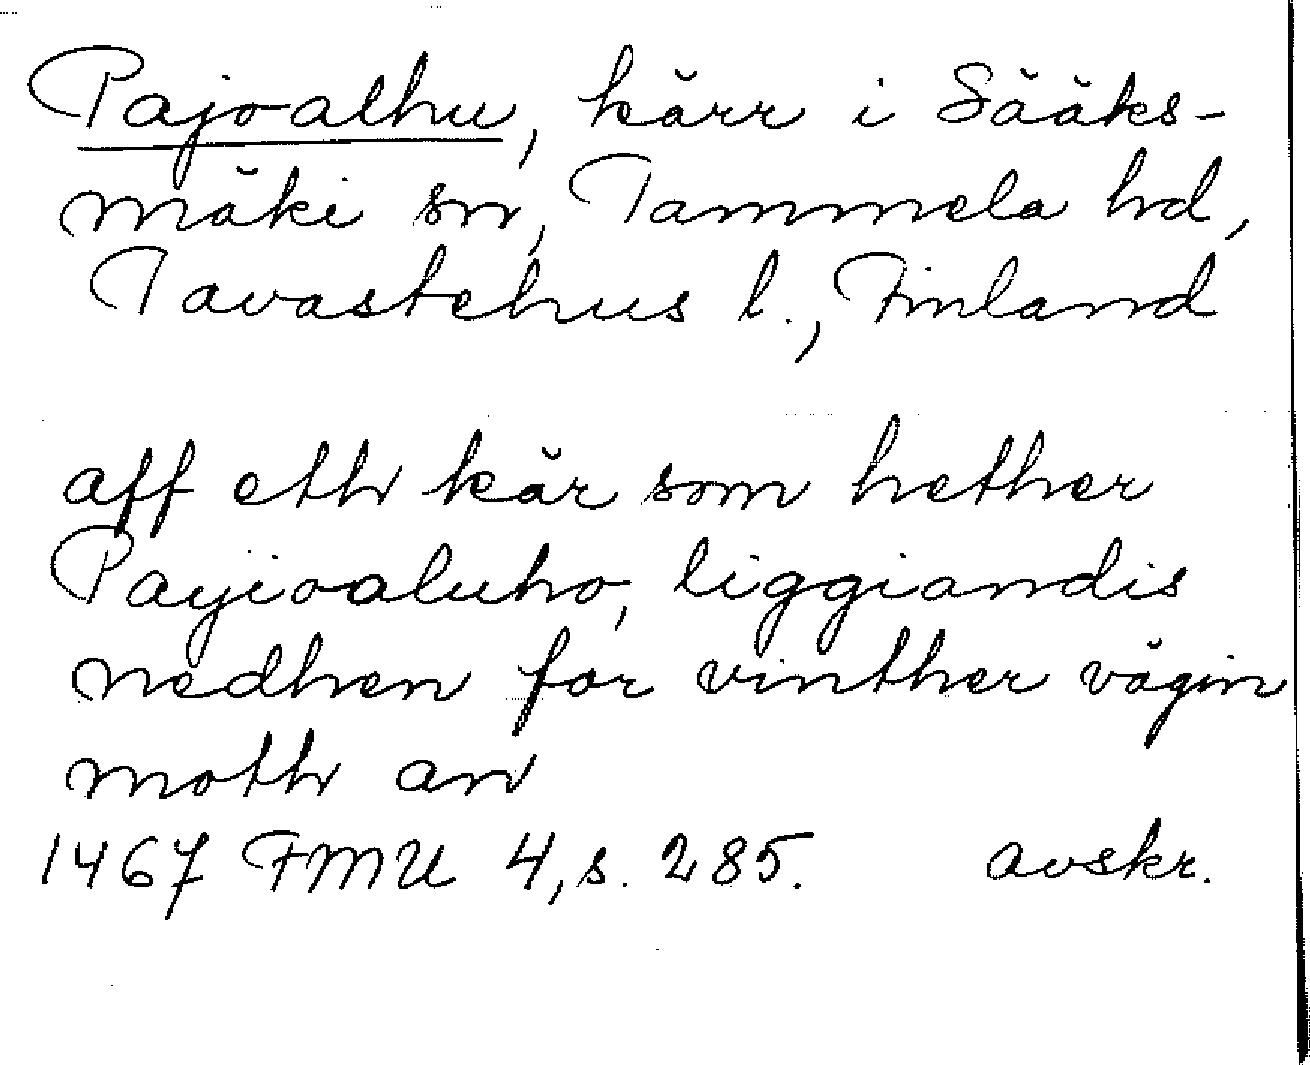 Pajoalhu, kärr i Sääks-
mäki sn, Tammela hd,
Tavastehus l., Finland
aff eth kär som hether
Payioaluho, liggiandis
nedhen for vinther vägin
moth an
1467 FMU 4, s. 285. avskr.